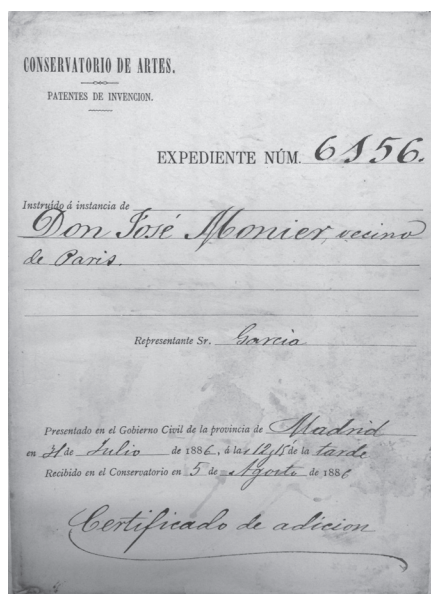 CONSERVATORIO DE ARTES.
PATENTES DE INVENCION.
EXPEDIENTE NÚM. 6156.
Instruído á instancia de
Don José Monier, vecino
de Paris.
Representante Sr. Garcia
Presentado en el Gobierno Civil de la provincia de Madrid
en 31 de Julio de 1886, á las 12,15 de la tarde
Recibido en el Conservatorio en 5 de Agosto de 1886
Certificado de adicion